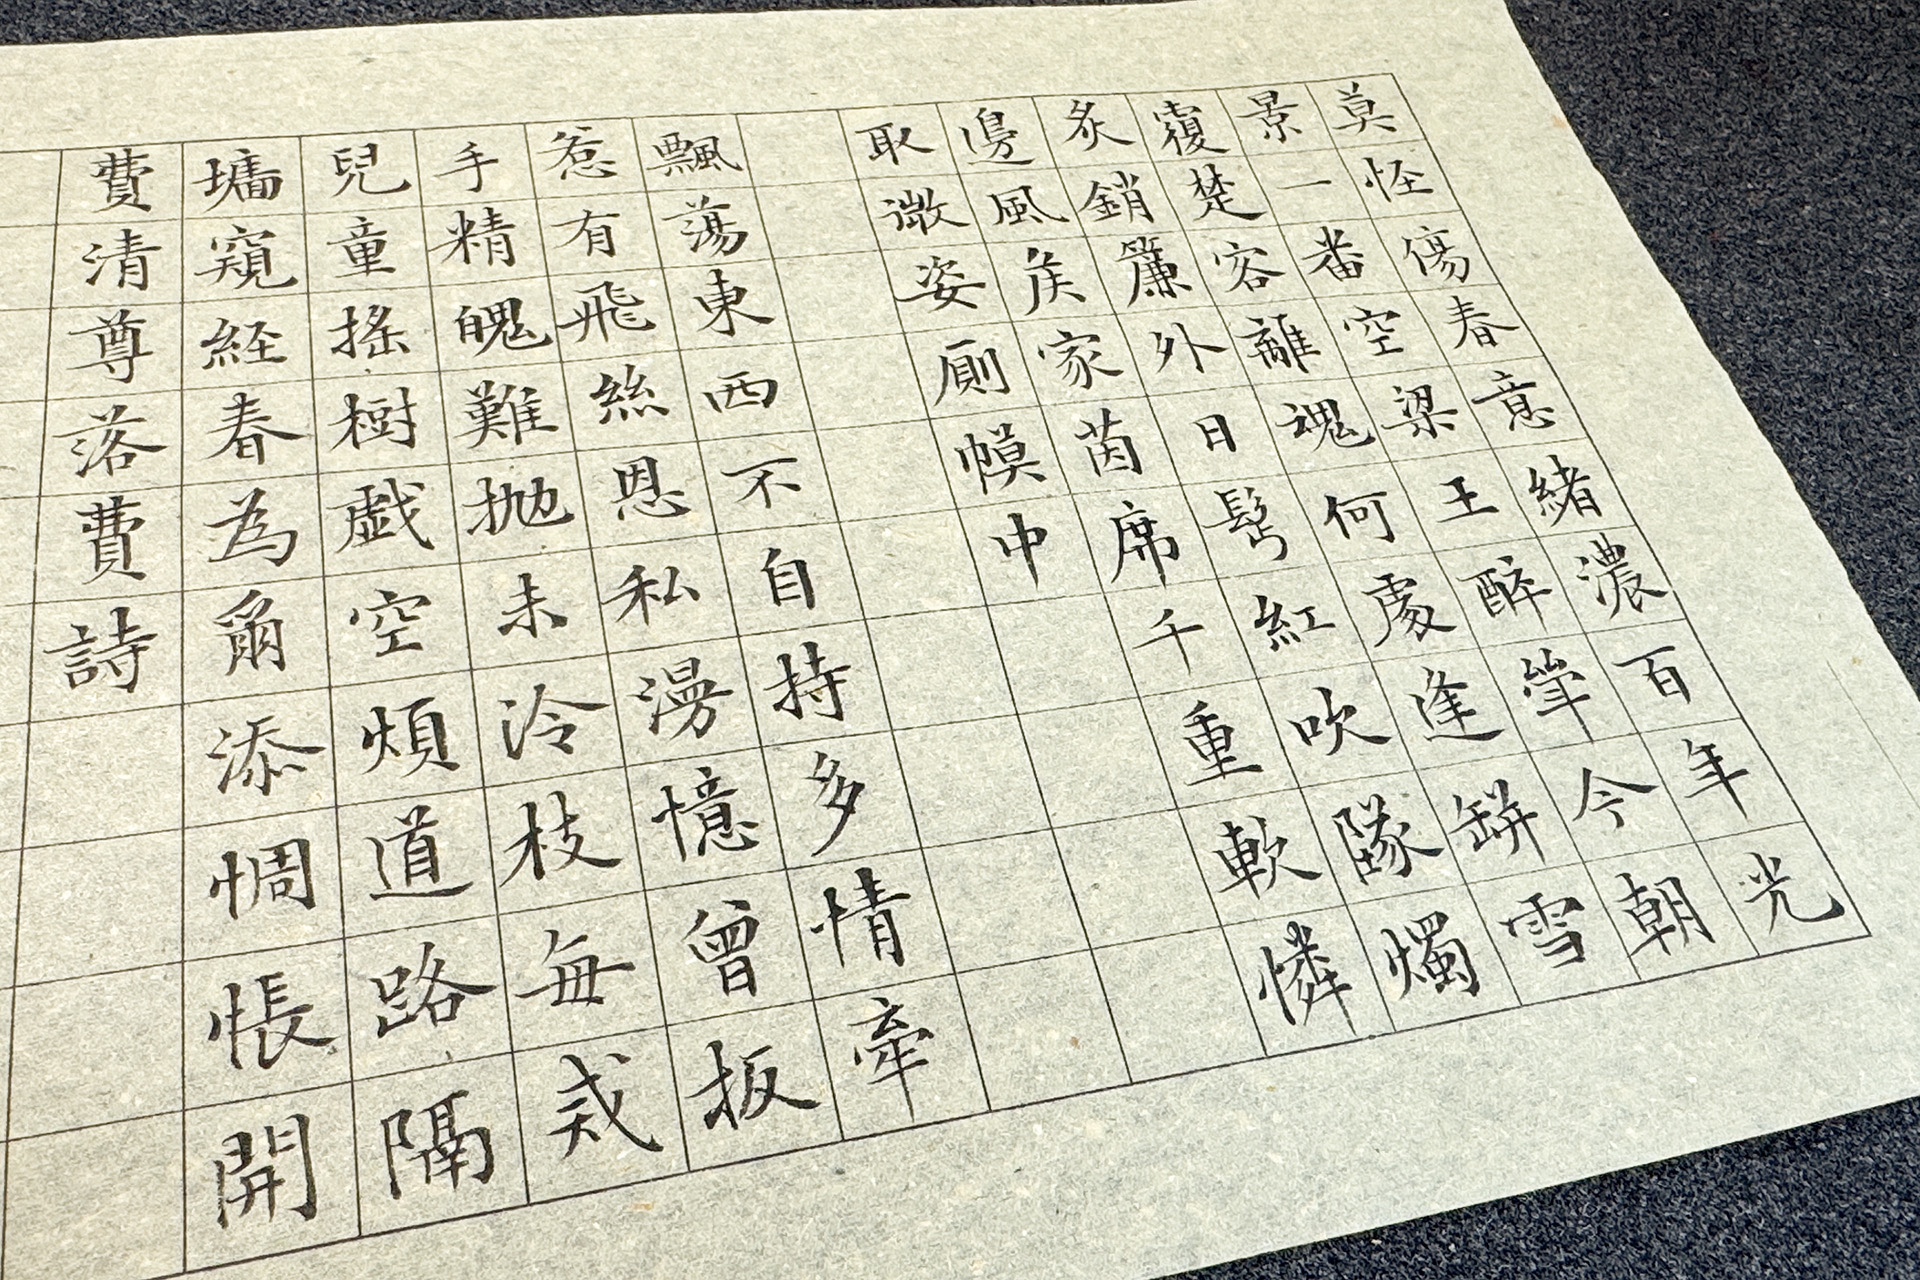 莫怪傷春意緒濃百年光
景一番空梁王醉斝今朝
覆楚客離魂何處逢缾雪
炙銷簾外日髩紅吹墜燭
邊風侯家茵席千重軟憐
取微姿厠幙中
飄蕩東西不自持多情牽
惹有飛絲恩私漫憶曾扳
手精魄難拋未冷枝每戒
兒童搖樹戯空煩道路隔
墻窺経春為爾添惆悵開
費清尊落費詩